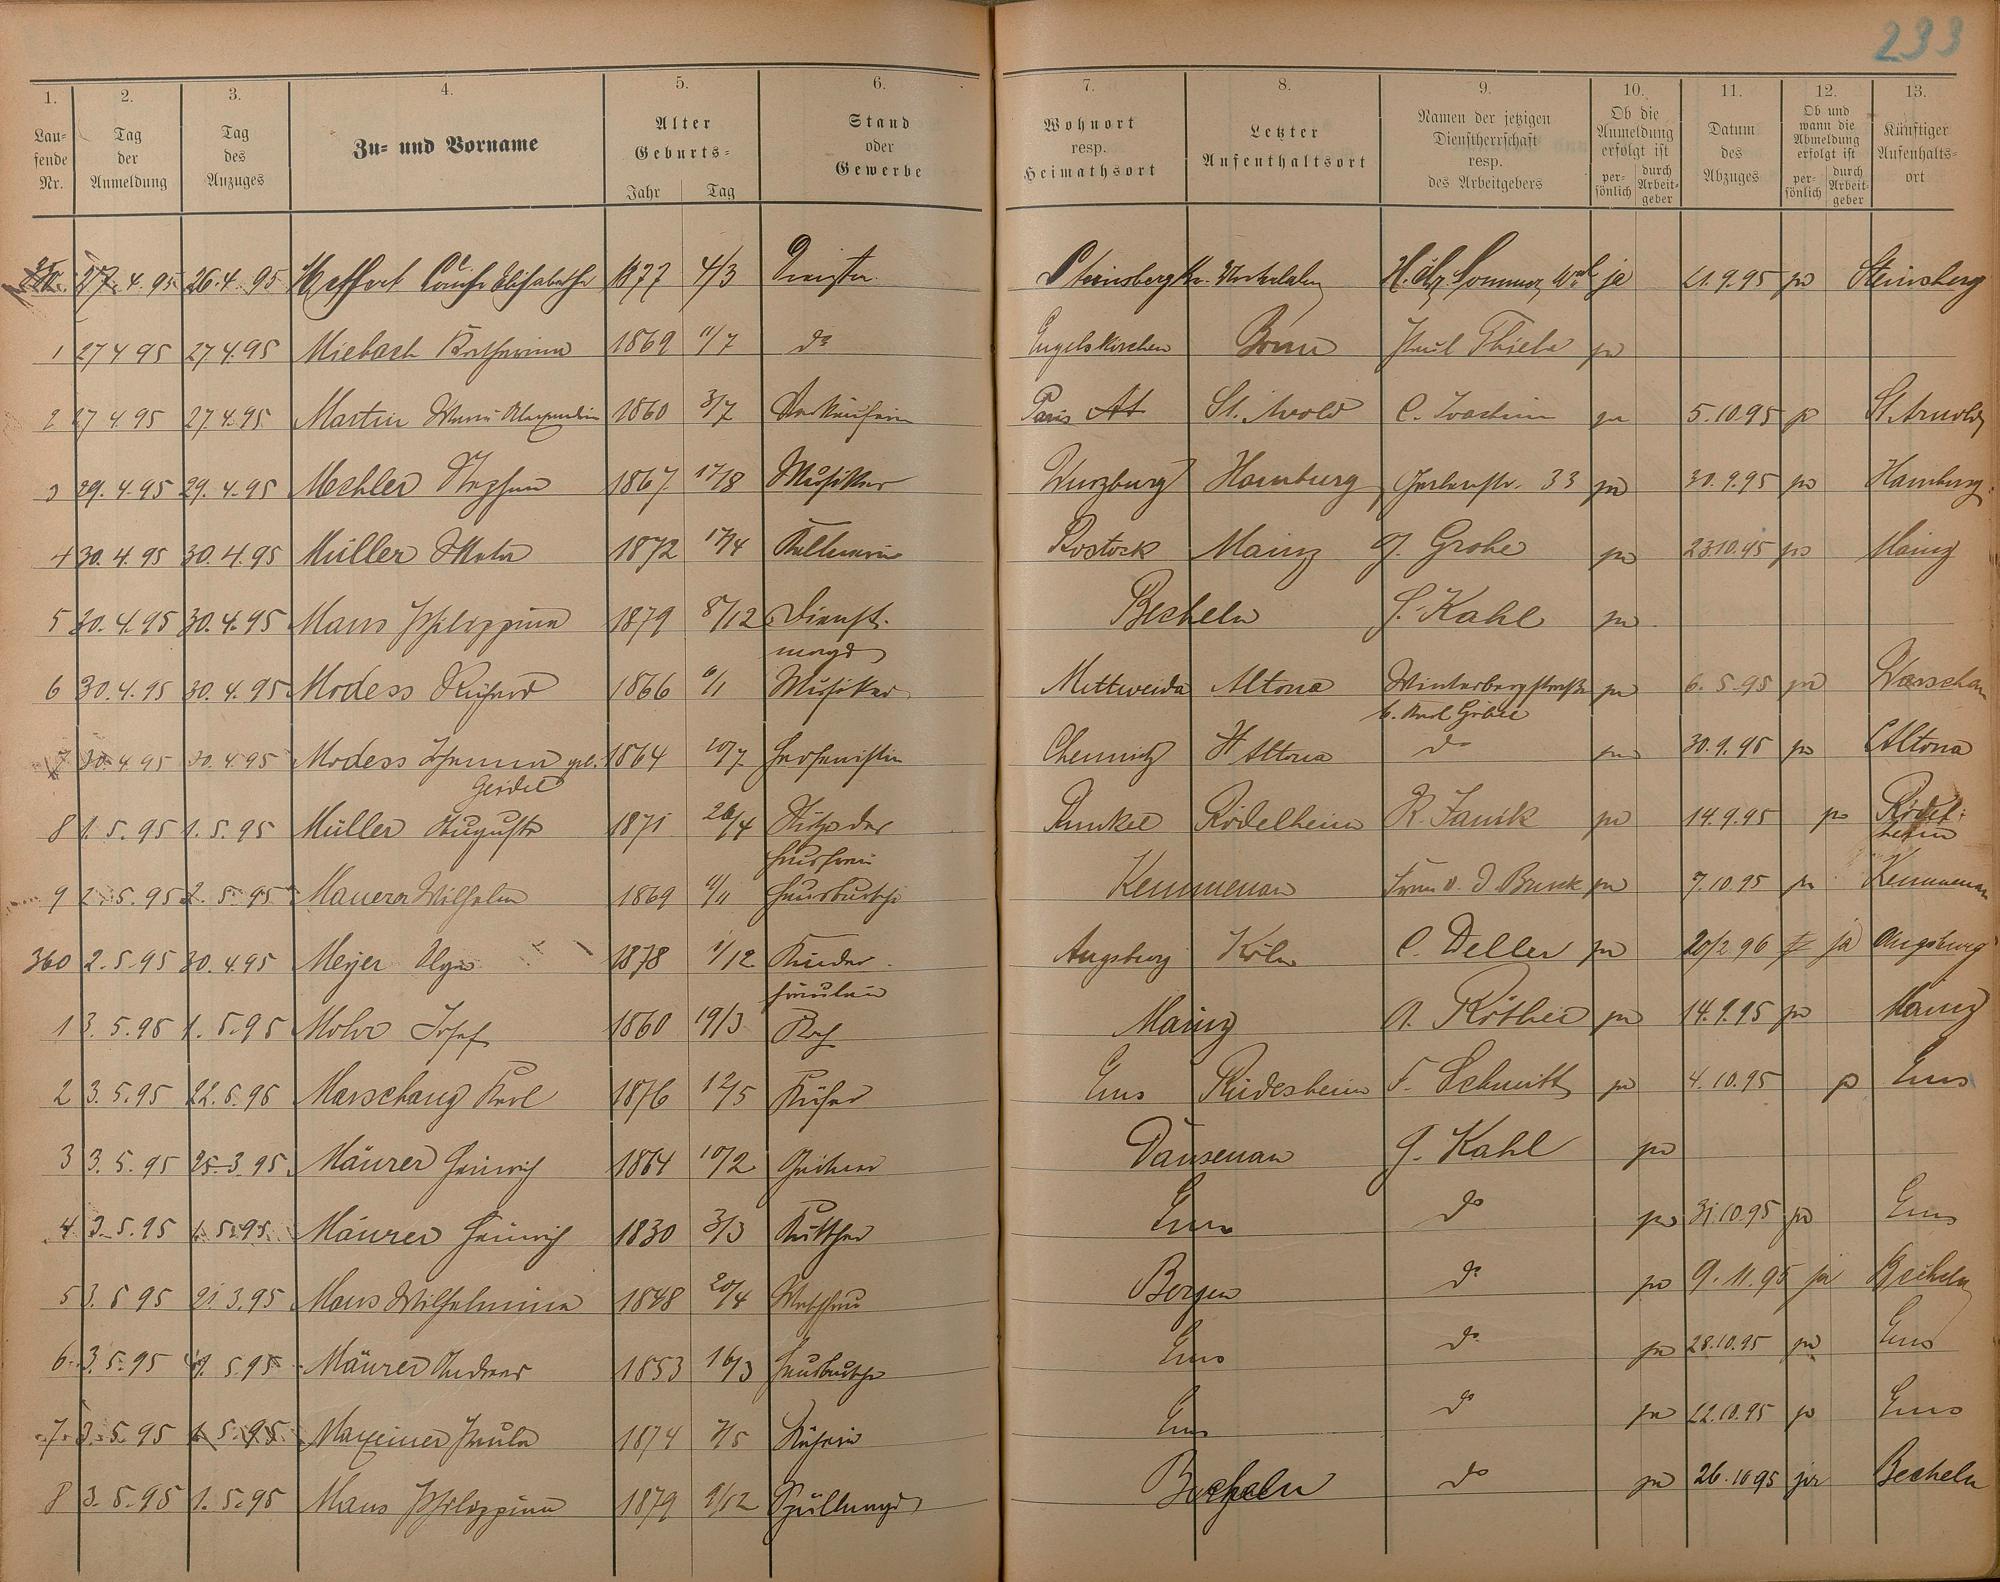 233
1. 2. 3. 4. 5. 6. 7. 8. 9. 10. 11. 12. 13.
Lau-
fende
Nr.
Tag
der
Anmeldung
Tag
des
Anzuges
Zu- und Vorname
Alter
Geburts-
Jahr Tag
Stand
oder
Gewerbe
Wohnort
resp.
Heimathsort
Letzter
Aufenthaltsort
Namen der jetzigen
Dienstherrschaft
resp.
des Arbeitgebers
Ob die
Anmeldung
erfolgt ist
per-
sönlich
durch
Arbeit-
geber
Datum
des
Abzuges
Ob und
wann die
Abmeldung
erfolgt ist
per-
sönlich
durch
Arbeit-
geber
Künftiger
Aufenthalts-
ort
27.4.95 26.4.95 Meffert Elisabethe 1877 4/3 Steinsberg ja 21.9.95 ja Steinsberg
1 27 4 95 27 4.95 Miebach Katharina 1869 11/7 do Engelskirchen Bonn Paul Thiele ja
2 27 4 95 27 4.95 Martin 1860 3/7 Verkäuferin Paris St. Avold C. Joachim ja 5.10.95 ja
3 29.4.95 29.4.95 Mechler Stephan 1867 17/8 Musiker Würzburg Hamburg 33 ja 30.9.95 ja Hamburg
4 30.4.95 30.4.95 Müller 1872 17/4 Kellnerin Rostock Mainz G. Grohe ja 23.10.95 ja Mainz
5 30.4.95 30.4.95 Maus Philippina 1879 8/12 Dienst- Becheln Kahl ja
magd
6 30.4.95 30.4.95 Modess Richard 1866 6/1 Musiker Mittweida Altona Winterbergstraße ja 6.5.95 ja Warschau
7 30.4.95 30.4.95 Modess gb. 1864 10/7 Harfenistin Chemnitz Altona do ja 30.9.95 ja Altona
Geidel
8 1.5.95 1.5.95 Müller Auguste 1871 26/4 Stütze der Runkel Rödelheim R. Janik ja 14.9.95 ja Rödel-
Hausfrau heim
9 2.5.95 2.5.95 Maurer Wilhelm 1869 Hausbursche Kemmenau ja 7.10.95 ja Kemmenau
360 2.5.95 30.4.95 Meyer Olga 1878 1/12 Kinder- Augsburg Köln C. Deller ja 20/2 96 ja Augsburg
fräulein
1 3.5.95 1.5.95 Mohr Josef 1860 19/3 Koch Mainz A. Röther ja 14.9.95 ja Mainz
2 3.5.95 22.5.95 Marschang Karl 1876 12/5 Küfer Ems Rüdesheim F. Schmitt ja 4.10.95 ja Ems
3 3.5.95 25.3.95 Mäurer Heinrich 1864 10/2 Gärtner Dausenau J. Kahl ja
4 3.5.95 1.5.95 Mäurer Heinrich 1830 3/3 Kutscher Ems do ja 31.10.95 ja Ems
5 3.5 95 21.3.95 Maus Wilhelmina 1848 20/4 Waschfrau Bergen do ja 9.11.95 ja Becheln
6 3.5.95 5.95 Mäurer Andreas 1853 16/3 Hausbursche Ems do ja 28.10.95 ja Ems
7 3.5.95 1.5.95 Maxeiner Paula 1874 7/5 Ems do ja 22.10.95 ja Ems
8 3.5.95 1.5.95 Maus Philippina 1879 9/12 Spülmagd Becheln do ja 26.10 95 ja Becheln